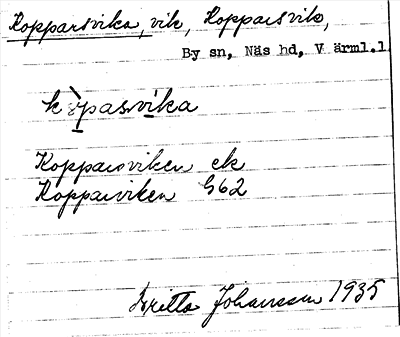 Kopparsvika, vik, Kopparsvik,
By sn, Näs hd, Värml.l
Kopparsviken ek
Kopparviken G62
Britta Johansson 1935